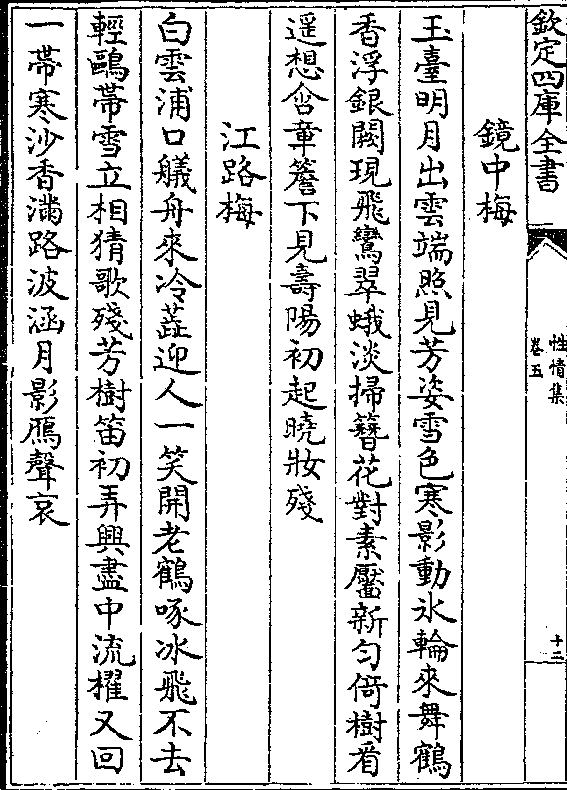 欽定四庫全書
性情集
卷五
十二
鏡中梅
玉臺明月出雲端照見芳姿雪色寒影動氷輪來舞鶴
香浮銀闕現飛鸞翠蛾淡掃簪花對素靨新勻倚樹看
遥想含章簷下見壽陽初起曉妝殘
江路梅
白雲浦口艤舟來冷蕋迎人一笑開老鶴啄冰飛不去
輕鷗帶雪立相猜歌殘芳樹笛初弄興盡中流櫂又回
一帶寒沙香滿路波涵月影鴈聲哀